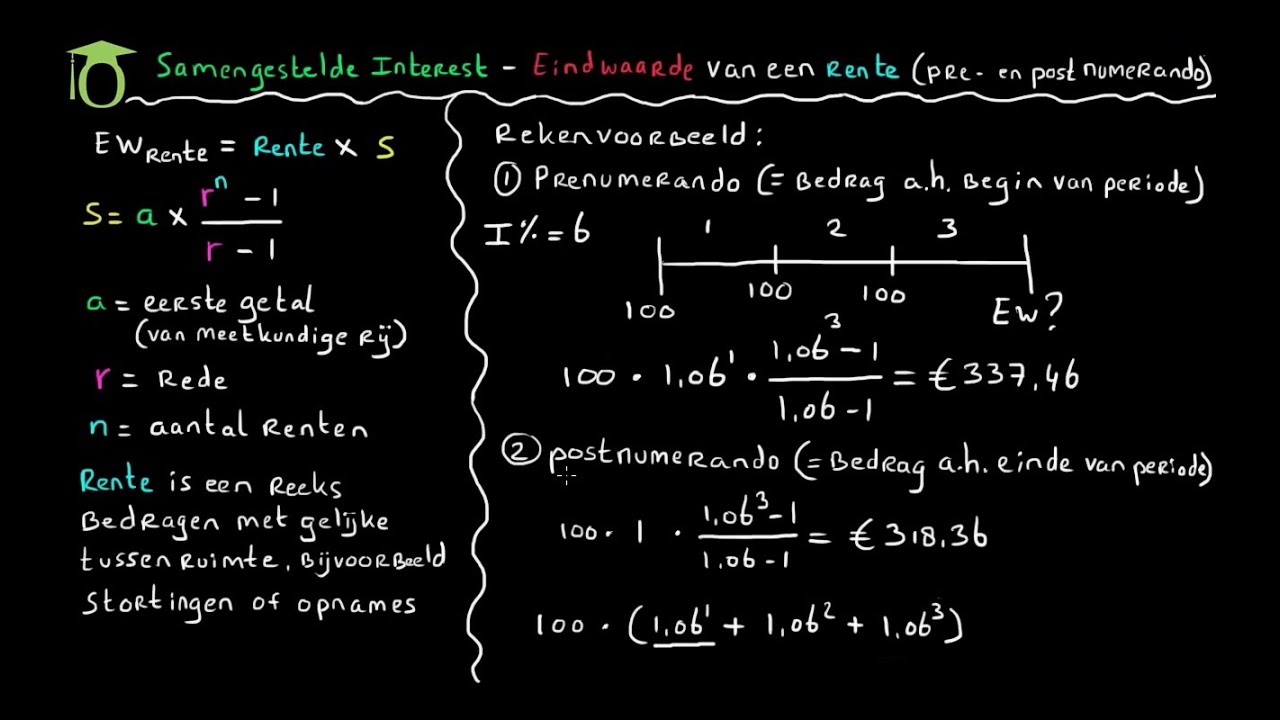 Samengestelde Interest - Eindwaarde van een Rente (pre- en postnumerando)
EW Rente = Rente x S
S = a x (r^n - 1) / (r - 1)
a = eerste getal
(van meetkundige rij)
r = Rede
n = aantal Renten
Rente is een Reeks
Bedragen met gelijke
tussenruimte, Bijvoorbeeld
Stortingen of opnames
Rekenvoorbeeld:
① Prenumerando (= Bedrag a.h. Begin van periode)
I% = 6
1 2 3
100 100 100 EW?
100 · 1,06^1 · (1,06^3 - 1) / (1,06 - 1) = €337,46
② postnumerando (= Bedrag a.h. einde van periode)
100 · 1 · (1,06^3 - 1) / (1,06 - 1) = €318,36
100 · (1,06^1 + 1,06^2 + 1,06^3)